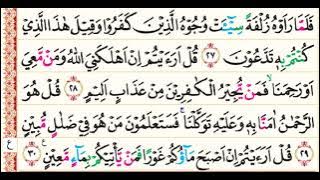 فَلَمَّا رَاَوْهُ زُلْفَةً سِيْٓئَتْ وُجُوْهُ الَّذِيْنَ كَفَرُوْا وَقِيْلَ هٰذَا الَّذِيْ
كُنْتُمْ بِهٖ تَدَّعُوْنَ ٢٧ قُلْ اَرَءَيْتُمْ اِنْ اَهْلَكَنِيَ اللّٰهُ وَمَنْ مَّعِيَ
اَوْ رَحِمَنَا فَمَنْ يُّجِيْرُ الْكٰفِرِيْنَ مِنْ عَذَابٍ اَلِيْمٍ ٢٨ قُلْ هُوَ
الرَّحْمٰنُ اٰمَنَّا بِهٖ وَعَلَيْهِ تَوَكَّلْنَا فَسَتَعْلَمُوْنَ مَنْ هُوَ فِيْ ضَلٰلٍ مُّبِيْنٍ
٢٩ قُلْ اَرَءَيْتُمْ اِنْ اَصْبَحَ مَآؤُكُمْ غَوْرًا فَمَنْ يَّأْتِيْكُمْ بِمَآءٍ مَّعِيْنٍ ٣٠
ع